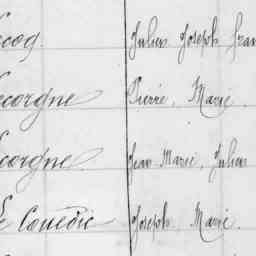 ecog. Julien Joseph Fran
ecorgne Pierre, Marie.
ecorgne. Jean Marie, Julien
Le Couëdic Joseph, Marie.